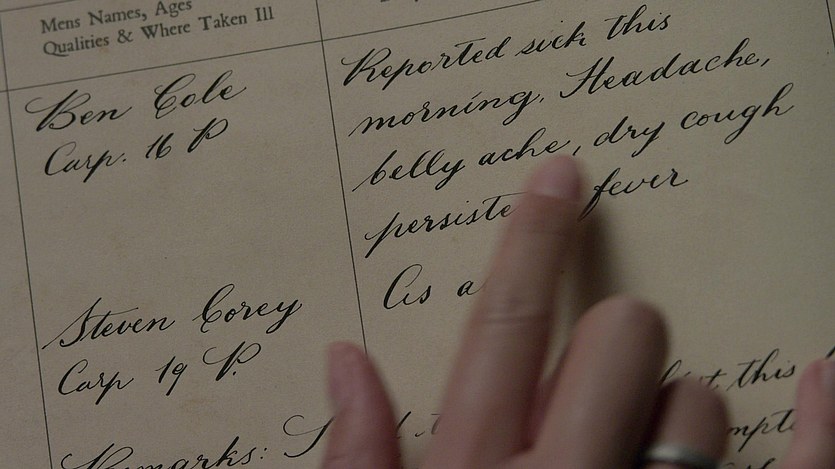 Mens Names, Ages
Qualities & Where Taken Ill
Ben Cole
Carp. 16 P
Reported sick this
morning. Headache,
belly ache, dry cough
fever
Steven Corey
Carp 19 P.
As a
Remarks:
this